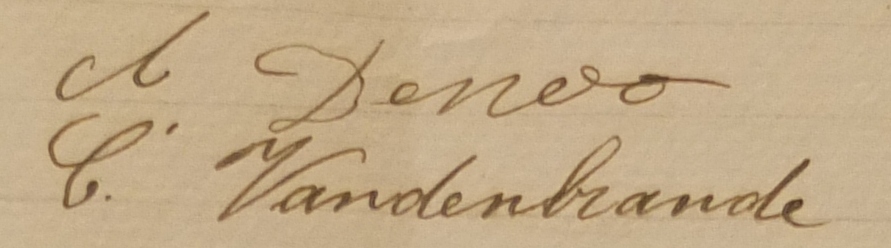 A Denoo
C. Vandenbrande